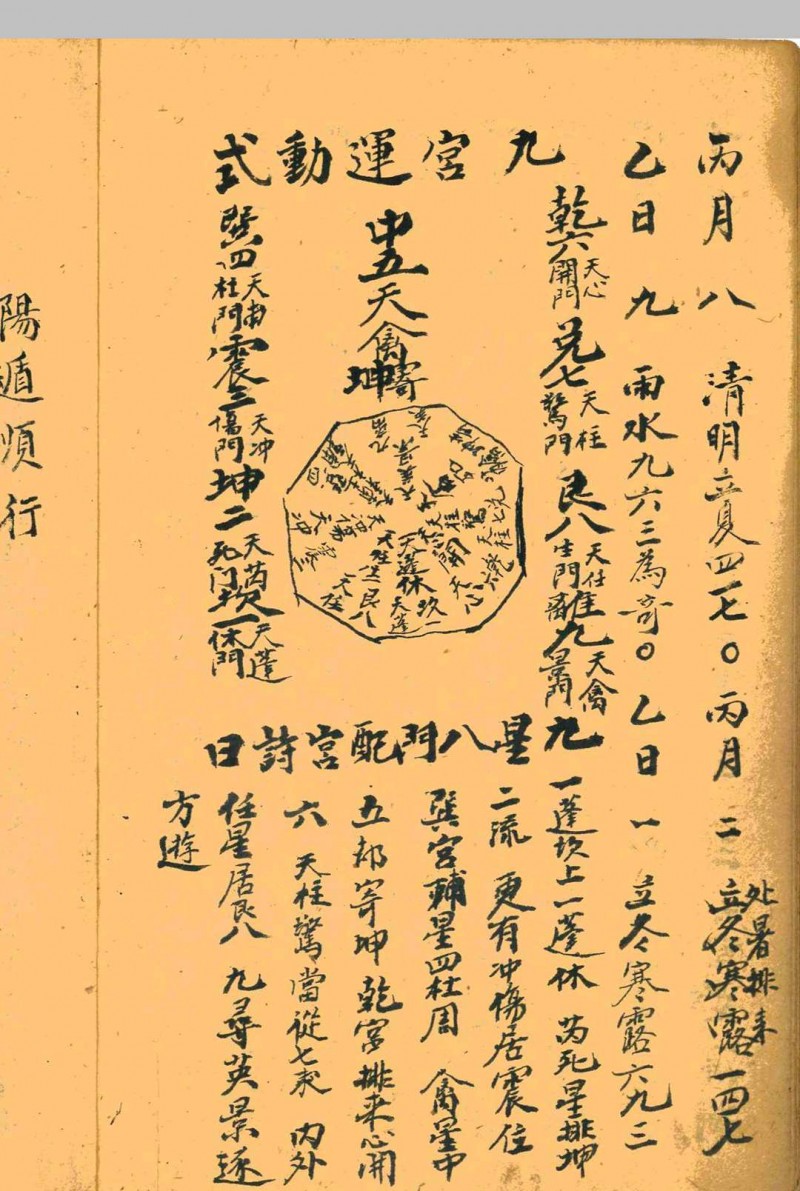 丙月八 清明立夏四一七〇丙月二 立冬寒露一四七
处暑排来
乙日九 雨水九六三為奇〇乙日一 立冬寒露六九三
乾六天心開門 兑七天柱驚門 艮八天任生門 離九天禽景門
九宮運動式
中五天禽寄坤
巽四天甫杜門 震三天冲傷門 坤二天芮死门 坎一天蓬休門
九星八門配宮詩曰
一蓬坎上一蓬休 芮死星排坤
二流 更有冲傷居震位
巽宮輔星四杜周 禽星中
五都寄坤 乾宮排来心開
六 天柱驚當從七 内外
任星居艮八 九尋英景逐
方遊
天蓬休坎一
天蓬
艮八
震三
陽遁順行